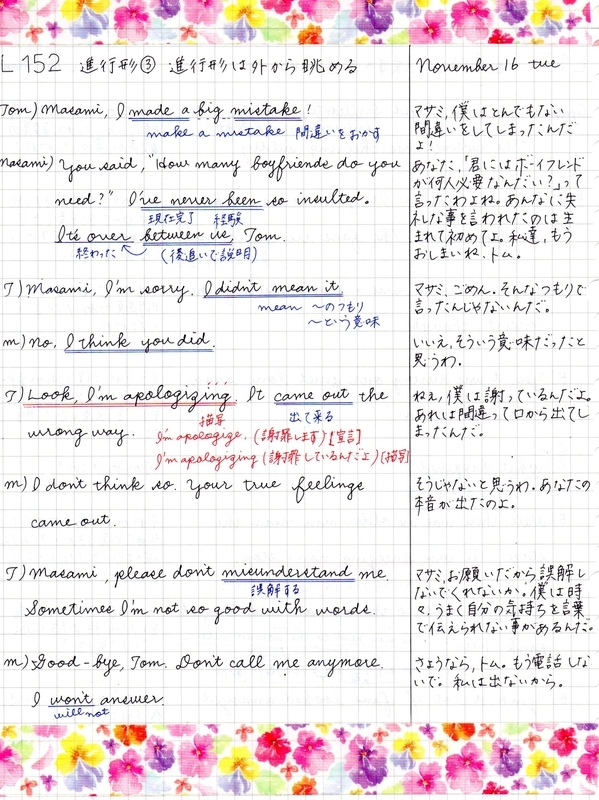 L 152 進行形③ 進行形は外から眺める
November 16 tue
Tom) Masami, I made a big mistake!
make a mistake 間違いをおかす
マサミ,僕はとんでもない
間違いをしてしまったんだ
よ!
Masami) You said, "How many boyfriends do you
need?" I've never been so insulted.
現在完了 経験
It's over between us, Tom.
終わった (後追いで説明)
あなた,「君にはボーイフレンド
が何人必要なんだい?」って
言ったわよね。あんなに失
礼な事を言われたのは生
まれて初めてよ。私達,もう
おしまいね,トム。
T) Masami, I'm sorry. I didn't mean it.
mean 〜のつもり
〜という意味
マサミ,ごめん。そんなつもりで
言ったんじゃないんだ。
m) No, I think you did.
いいえ,そういう意味だったと
思うわ。
T) Look, I'm apologizing. It came out the
描写 出て来る
wrong way. I'm apologige. (謝罪します)[宣言]
I'm apologizing (謝罪しているんだよ)[描写]
ねぇ,僕は謝っているんだよ。
あれは間違って口から出てし
まったんだ。
m) I don't think so. Your true feelings
came out.
そうじゃないと思うわ。あなたの
本音が出たのよ。
T) Masami, please don't misunderstand me.
誤解する
Sometimes I'm not so good with words.
マサミ,お願いだから誤解し
ないでくれないか。僕は時
々,うまく自分の気持ちを言葉
で伝えられない事があるんだ。
m) Good-bye, Tom. Don't call me anymore.
I won't answer.
will not
さようなら,トム。もう電話しな
いで。私は出ないから。